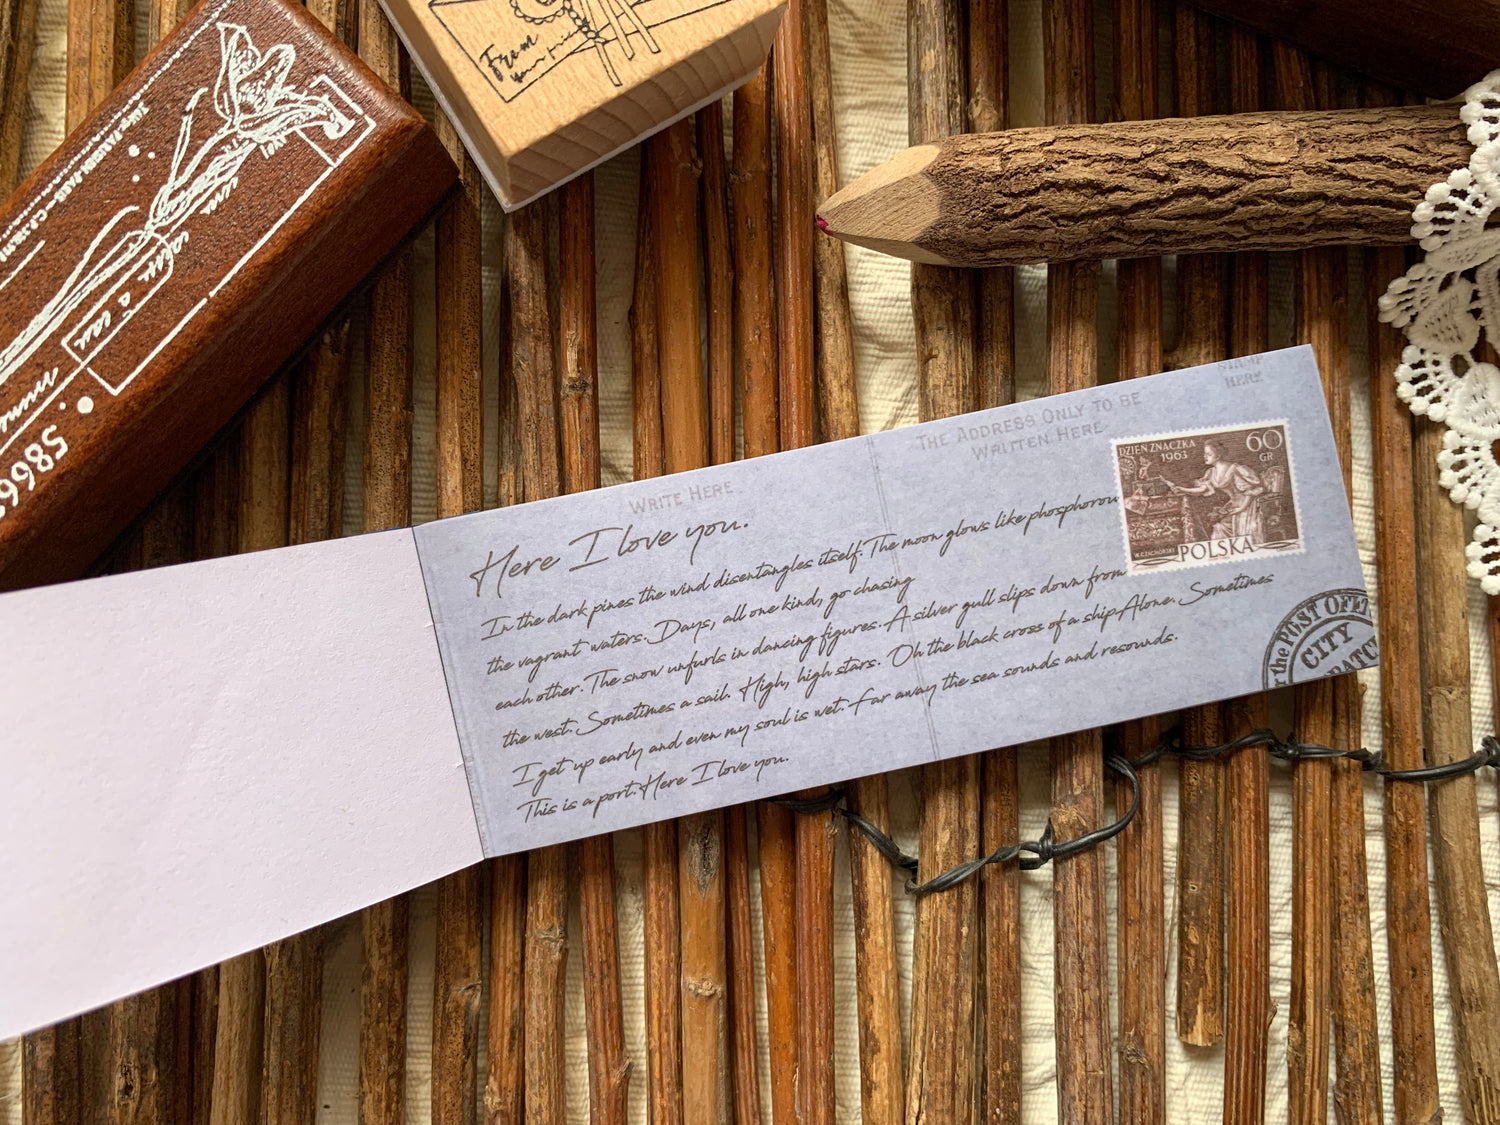 From
your friend
5866
WRITE HERE
THE ADDRESS ONLY TO BE
WRITTEN HERE
HERE
DZIEŃ ZNACZKA
1963
60
GR
POLSKA
Here I love you.
In the dark pines the wind disentangles itself. The moon glows like phosphorou
the vagrant waters. Days, all one kind, go chasing
each other. The snow unfurls in dancing figures. A silver gull slips down from
the west. Sometimes a sail. High, high stars. Oh the black cross of a ship Alone. Sometimes
I get up early and even my soul is wet. Far away the sea sounds and resounds.
This is a port. Here I love you.
POST OFFI
CITY